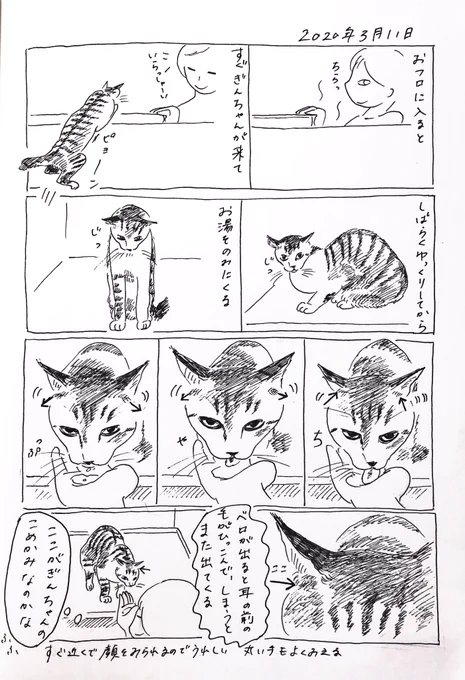 2020年3月11日
おフロに入ると
ちらっ
すぐぎんちゃんが来て
いらっしゃーい
ピョーン
しばらくゆっくりしてから
じっ
お湯をのみにくる
じっ
ち
ゃ
ぷっ
ここ
ベロが出ると耳の前の
毛がひっこんでしまうと
また出てくる
ここがぎんちゃんの
こめかみなのかな
ふふ
すぐ近くで顔をみられるのでうれしい 丸い手もよくみえる